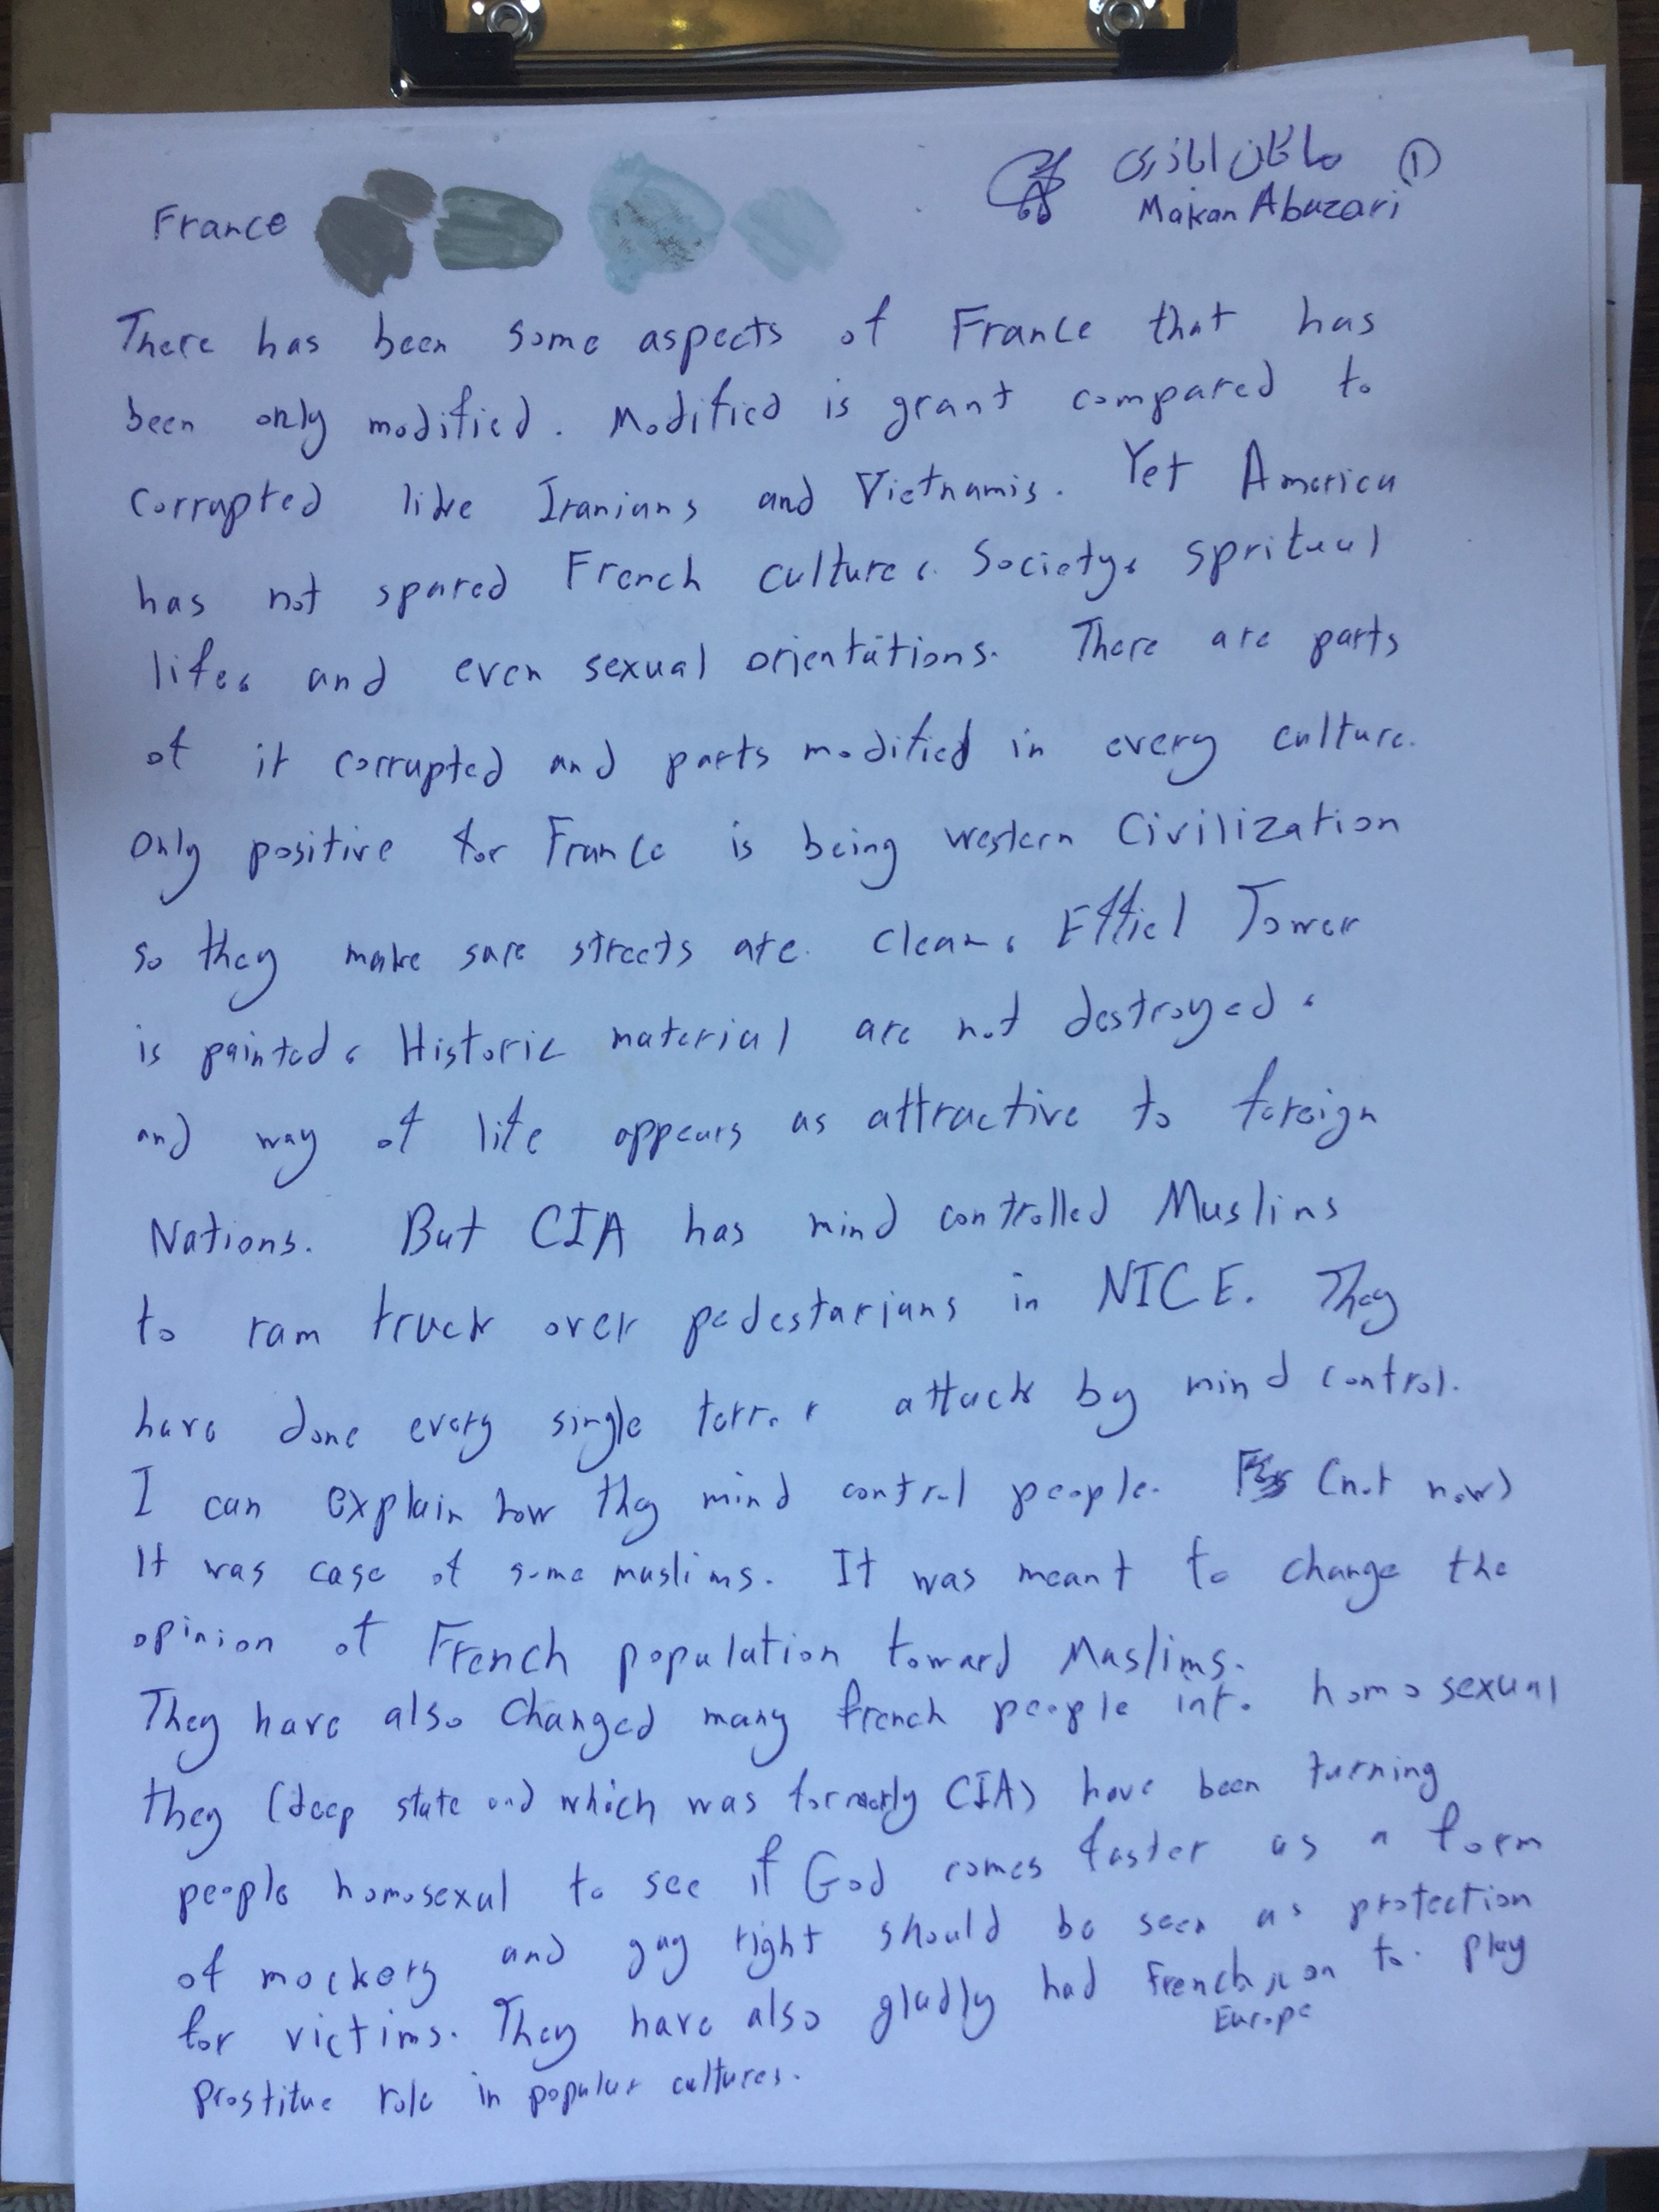 France
ماکان اباذری ①
Makan Abuzari
There has been some aspects of France that has
been only modified. Modified is grant compared to
corrupted like Iranians and Vietnamis. Yet America
has not spared French culture، Society، spritual
life، and even sexual orientations. There are parts
of it corrupted and parts modified in every culture.
only positive for France is being western Civilization
so they make sure streets are clean، Effiel Tower
is painted، Historic material are not destroyed،
and way of life appears as attractive to foreign
Nations. But CIA has mind controlled Muslins
to ram truck over pedestarians in NICE. They
have done every single terror attack by mind control.
I can explain how thy mind control people. (not now)
It was case of some muslims. It was meant to change the
opinion of French population toward Muslims.
They have also changed many french people into homosexual
they (deep state and which was formerly CIA) have been turning
people homosexul to see if God comes faster as a form
of mockery and gay right should be seen as protection
for victims. They have also gladly had French on to play
Europe
prostitue role in popular cultures.